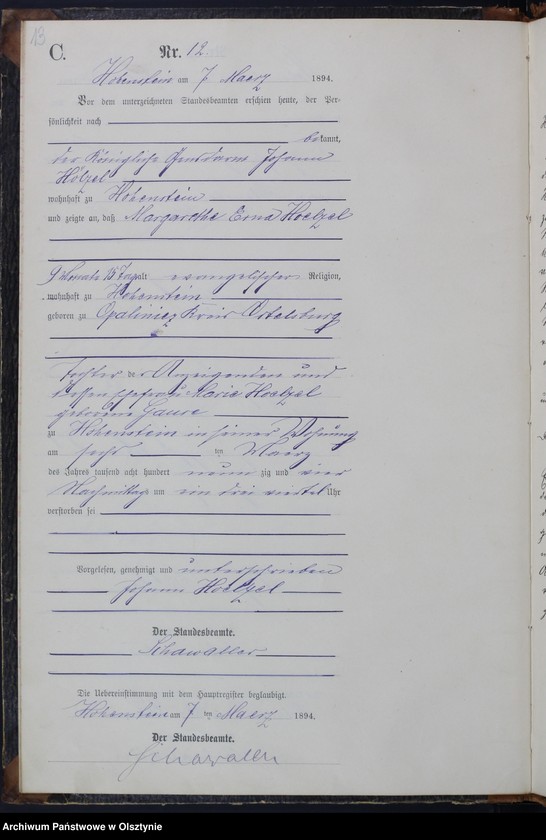 13
C.
Nr. 12.
Hohenstein am 7 Maerz 1894.
Vor dem unterzeichneten Standesbeamten erschien heute, der Per-
sönlichkeit nach
bekannt,
der Königliche Gendarm Johann
Hölzel
wohnhaft zu Hohenstein
und zeigte an, daß Margarethe Erna Hoelzel
9 Monate 15 Tage alt evangelischer Religion,
wohnhaft zu Hohenstein
geboren zu Opaliniez Kreis Ortelsburg
Tochter des Anzeigenden und
dessen Ehefrau Marie Hoelzel
geborene
zu Hohenstein in seiner Wohnung
am sechs ten Maerz
des Jahres tausend acht hundert neun zig und vier
Nachmittags um ein drei viertel Uhr
verstorben sei
Vorgelesen, genehmigt und unterschrieben
Johann Hoelzel
Der Standesbeamte.
Schawaller
Die Uebereinstimmung mit dem Hauptregister beglaubigt.
Hohenstein am 7 ten Maerz 1894.
Der Standesbeamte.
Schawaller
Archiwum Państwowe w Olsztynie